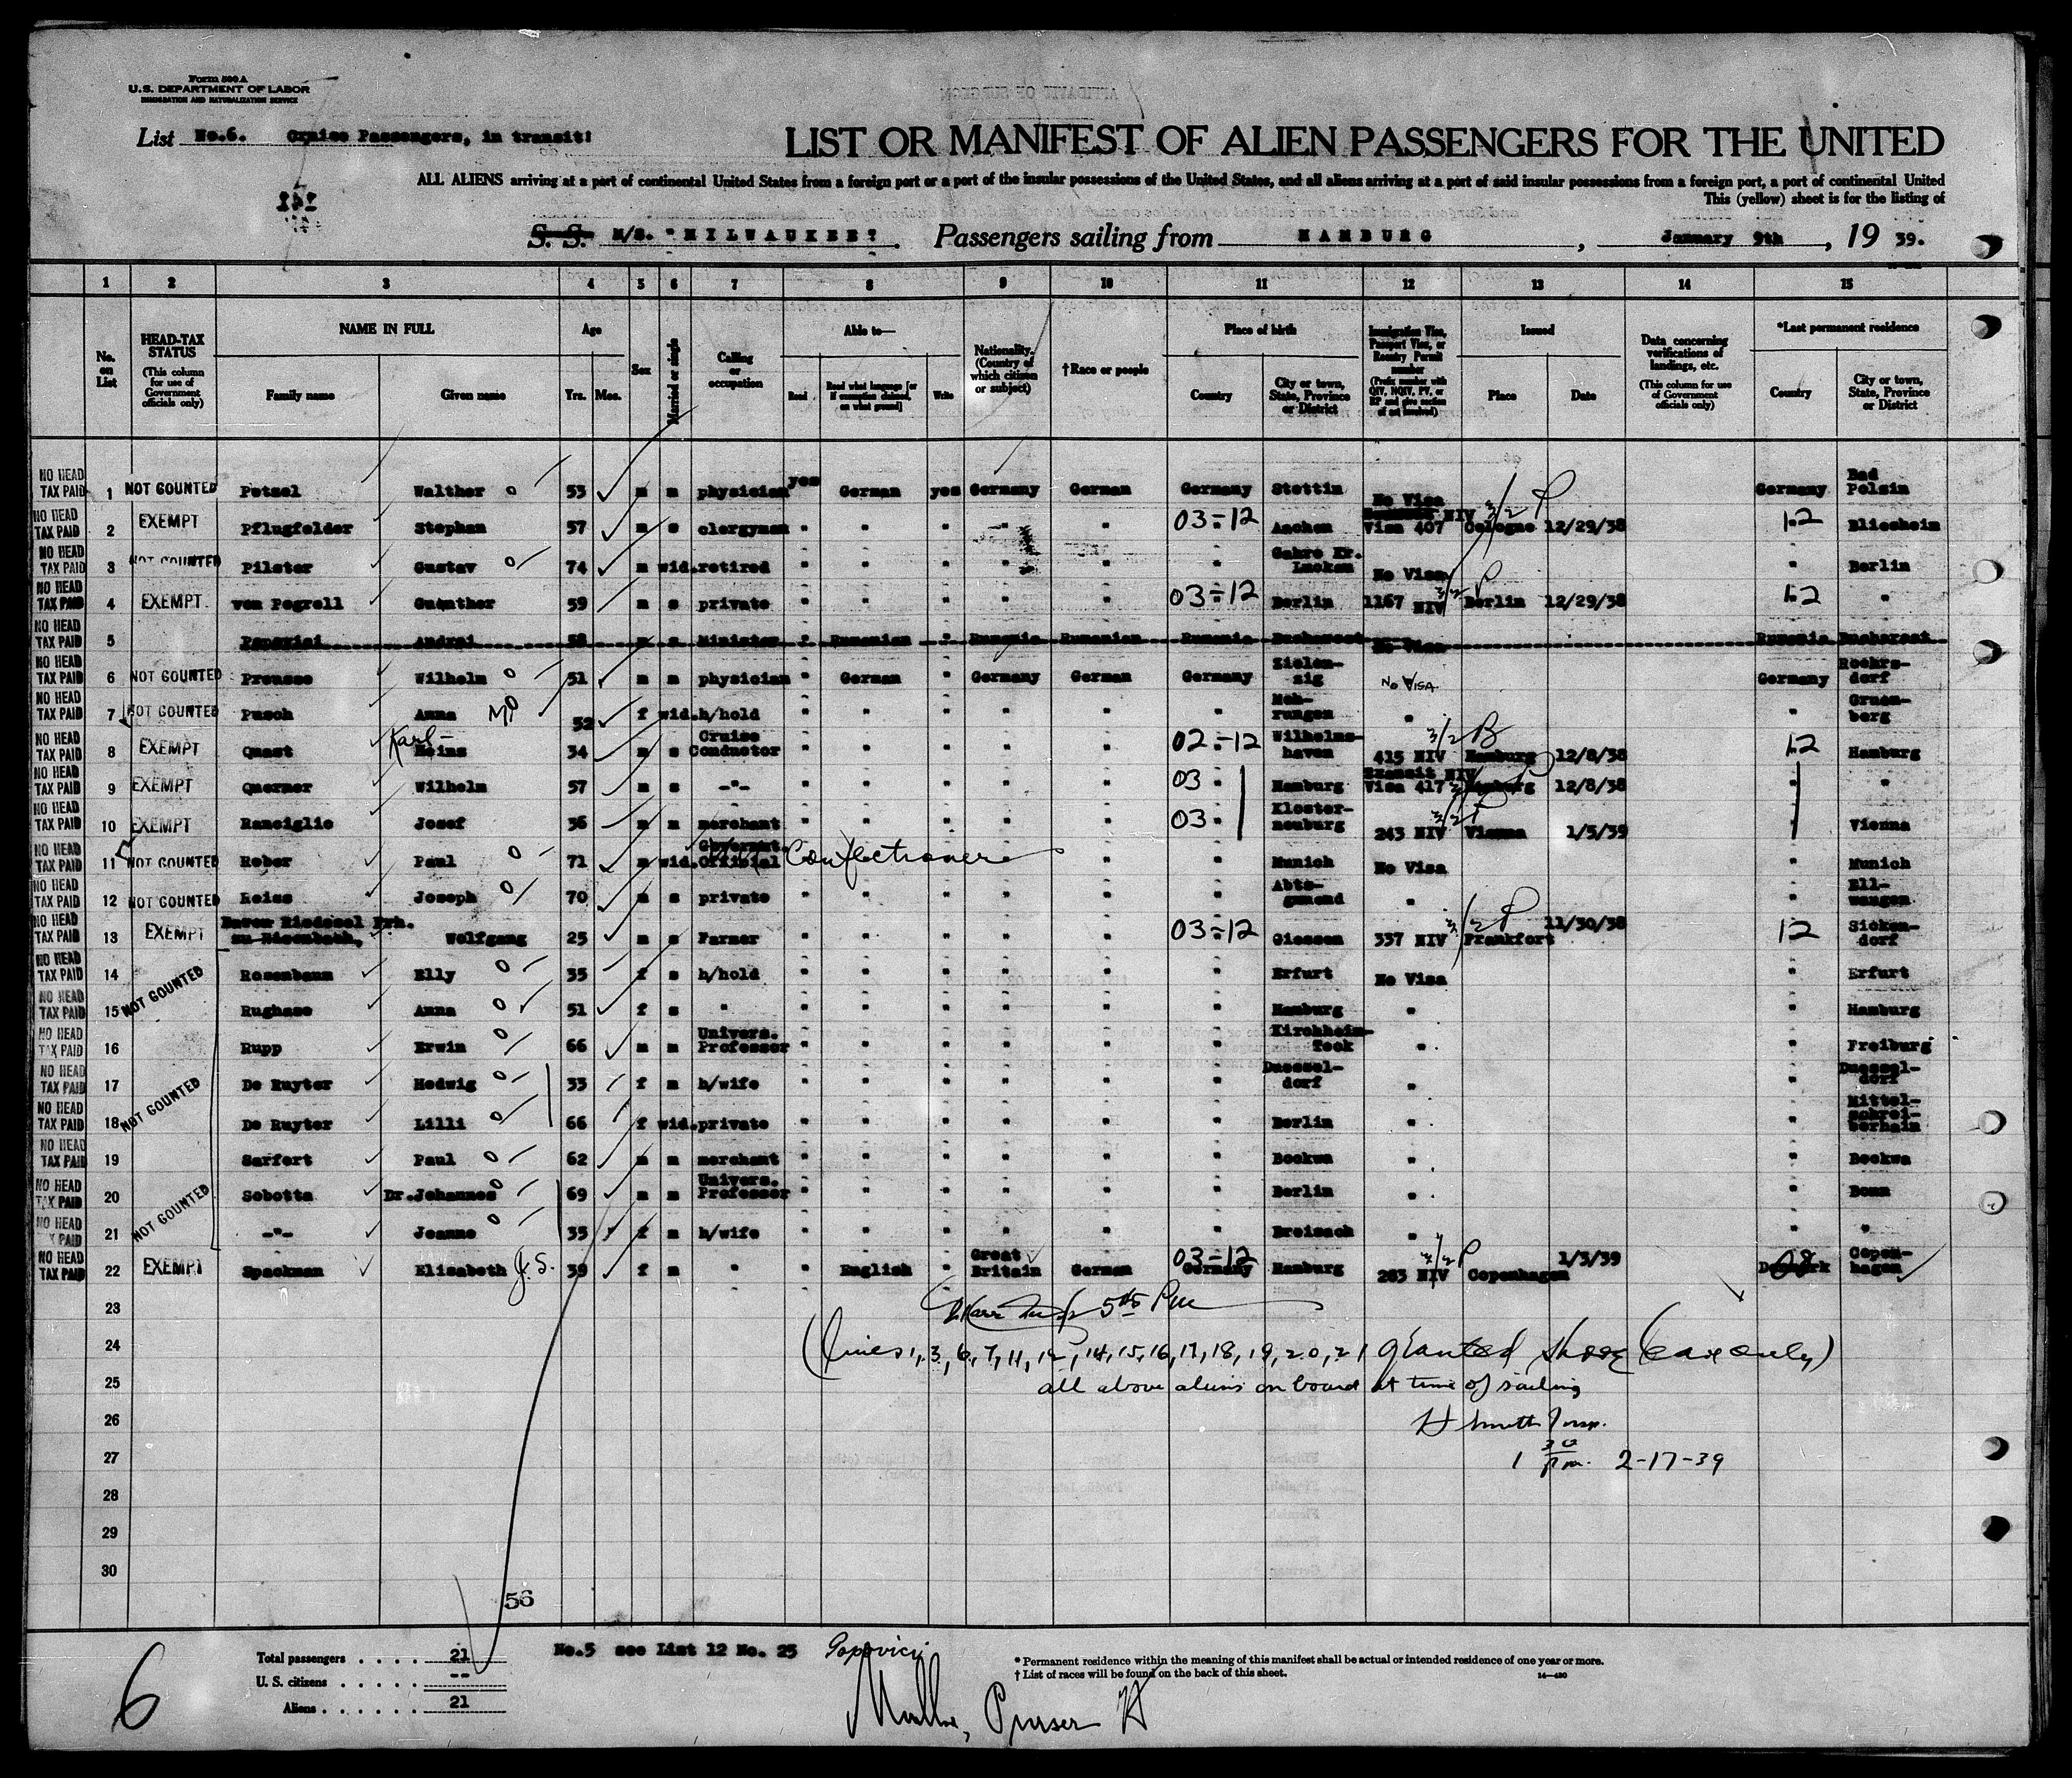 Form 500 A
U.S. DEPARTMENT OF LABOR
IMMIGRATION AND NATURALIZATION SERVICE
List No.6. Cruise Passengers, in transit:
LIST OR MANIFEST OF ALIEN PASSENGERS FOR THE UNITED
ALL ALIENS arriving at a port of continental United States from a foreign port or a port of the insular possessions of the United States, and all aliens arriving at a port of said insular possessions from a foreign port, a port of continental United
This (yellow) sheet is for the listing of
S. S. M/S. "MILWAUKEE". Passengers sailing from HAMBURG, January 9th, 19 39.
1 2 3 4 5 6 7 8 9 10 11 12 13 14 15
No. on List
HEAD-TAX STATUS (This column for use of Government officials only)
NAME IN FULL Family name Given name
Age Yrs. Mos.
Sex
Married or single
Calling or occupation
Able to— Read Read what language [or if exemption claimed, on what ground] Write
Nationality. (Country of which citizen or subject)
†Race or people
Place of birth Country City or town, State, Province or District
Immigration Visa, Passport Visa, or Reentry Permit number (Prefix number with QIV, NQIV, PV, or RP and give section of act involved)
Issued Place Date
Data concerning verifications of landings, etc. (This column for use of Government officials only)
*Last permanent residence Country City or town, State, Province or District
NO HEAD TAX PAID 1 NOT COUNTED Petzel Walther 53 m m physician yes German yes Germany German Germany Stettin No Visa Germany Bad Polzin
NO HEAD TAX PAID 2 EXEMPT Pflugfelder Stephan 57 m s clergyman " " " " " 03-12 Aachen NIV Visa 407 Cologne 12/29/38 12 Bliesheim
NO HEAD TAX PAID 3 NOT COUNTED Pilster Gustav 74 m wid. retired " " " " " " Gahro Kr. Luckau No Visa " Berlin
NO HEAD TAX PAID 4 EXEMPT von Pogrell Guenther 59 m s private " " " " " 03-12 Berlin 1167 NIV Berlin 12/29/38 12 "
NO HEAD TAX PAID 5 Andrei 58 m s Minister " Rumanian " Rumania Rumanian Rumania Bucharest No Visa Rumania Bucharest
NO HEAD TAX PAID 6 NOT COUNTED Preusse Wilhelm 51 m m physician " German " Germany German Germany Zielenzig No Visa Germany Roehrsdorf
NO HEAD TAX PAID 7 NOT COUNTED Pusch Anna 52 f wid. h/hold " " " " " " Mohrungen " " Gruenberg
NO HEAD TAX PAID 8 EXEMPT Quast Karl-Heinz 34 m s Cruise Conductor " " " " " 02-12 Wilhelmshaven 415 NIV Hamburg 12/8/38 12 Hamburg
NO HEAD TAX PAID 9 EXEMPT Querner Wilhelm 57 m s -"- " " " " " 03 Hamburg Transit NIV Visa 417 Hamburg 12/8/38 "
NO HEAD TAX PAID 10 EXEMPT Ranciglio Josef 36 m m merchant " " " " " 03 Klosterneuburg 243 NIV Vienna 1/5/39 Vienna
NO HEAD TAX PAID 11 NOT COUNTED Reber Paul 71 m wid. Governmt. Official Confectioner " " " Munich No Visa " Munich
NO HEAD TAX PAID 12 NOT COUNTED Reiss Joseph 70 m s private " " " " " " Abtsgmuend " " Ellwangen
NO HEAD TAX PAID 13 EXEMPT Baron Riedesel Frh. zu Eisenbach, Wolfgang 25 m s Farmer " " " " " 03-12 Giessen 337 NIV Frankfort 11/30/38 12 Sickendorf
NO HEAD TAX PAID 14 NOT COUNTED Rosenbaum Elly 35 f s h/hold " " " " " " Erfurt No Visa " Erfurt
NO HEAD TAX PAID 15 Rughase Anna 51 f s " " " " " " " Hamburg " " Hamburg
NO HEAD TAX PAID 16 Rupp Erwin 66 m m Univers. Professor " " " " " " Kirchheim-Teck " " Freiburg
NO HEAD TAX PAID 17 NOT COUNTED De Ruyter Hedwig 33 f m h/wife " " " " " " Duesseldorf " " Duesseldorf
NO HEAD TAX PAID 18 De Ruyter Lilli 66 f wid. private " " " " " " Berlin " " Mittelschreiberhain
NO HEAD TAX PAID 19 Sarfert Paul 62 m m merchant " " " " " " Bockwa " " Bockwa
NO HEAD TAX PAID 20 NOT COUNTED Sobotta Dr. Johannes 69 m m Univers. Professor " " " " " " Berlin " " Bonn
NO HEAD TAX PAID 21 -"- Jeanne 35 f m h/wife " " " " " " Breisach " " "
NO HEAD TAX PAID 22 EXEMPT Spackman Elisabeth J.S. 39 f m " " English " Great Britain German 03-12 Germany Hamburg 283 NIV Copenhagen 1/3/39 Denmark Copenhagen
23
24 (Lines 1, 3, 6, 7, 11, 12, 14, 15, 16, 17, 18, 19, 20, 21 granted shore leave only)
25 all above aliens on board at time of sailing
26 H Smith Insp.
27 1 30 P.m. 2-17-39
28
29
30
56
Total passengers 21
U. S. citizens --
Aliens 21
No.5 see List 12 No. 25 Popovici
* Permanent residence within the meaning of this manifest shall be actual or intended residence of one year or more.
† List of races will be found on the back of this sheet. 14—430
6
Purser